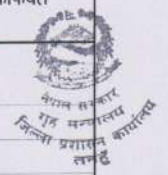 कैफियत
नेपाल सरकार
गृह मन्त्रालय
जिल्ला प्रशासन कार्यालय
तनहुँ